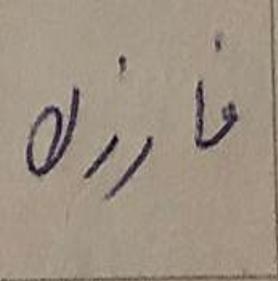 فارزه